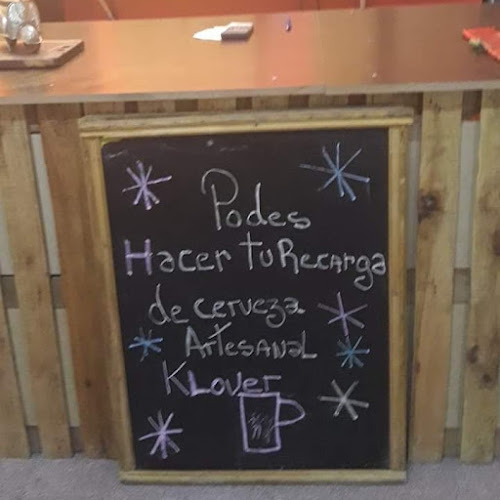 Podes
Hacer tu Recarga
de cerveza
Artesanal
Klover